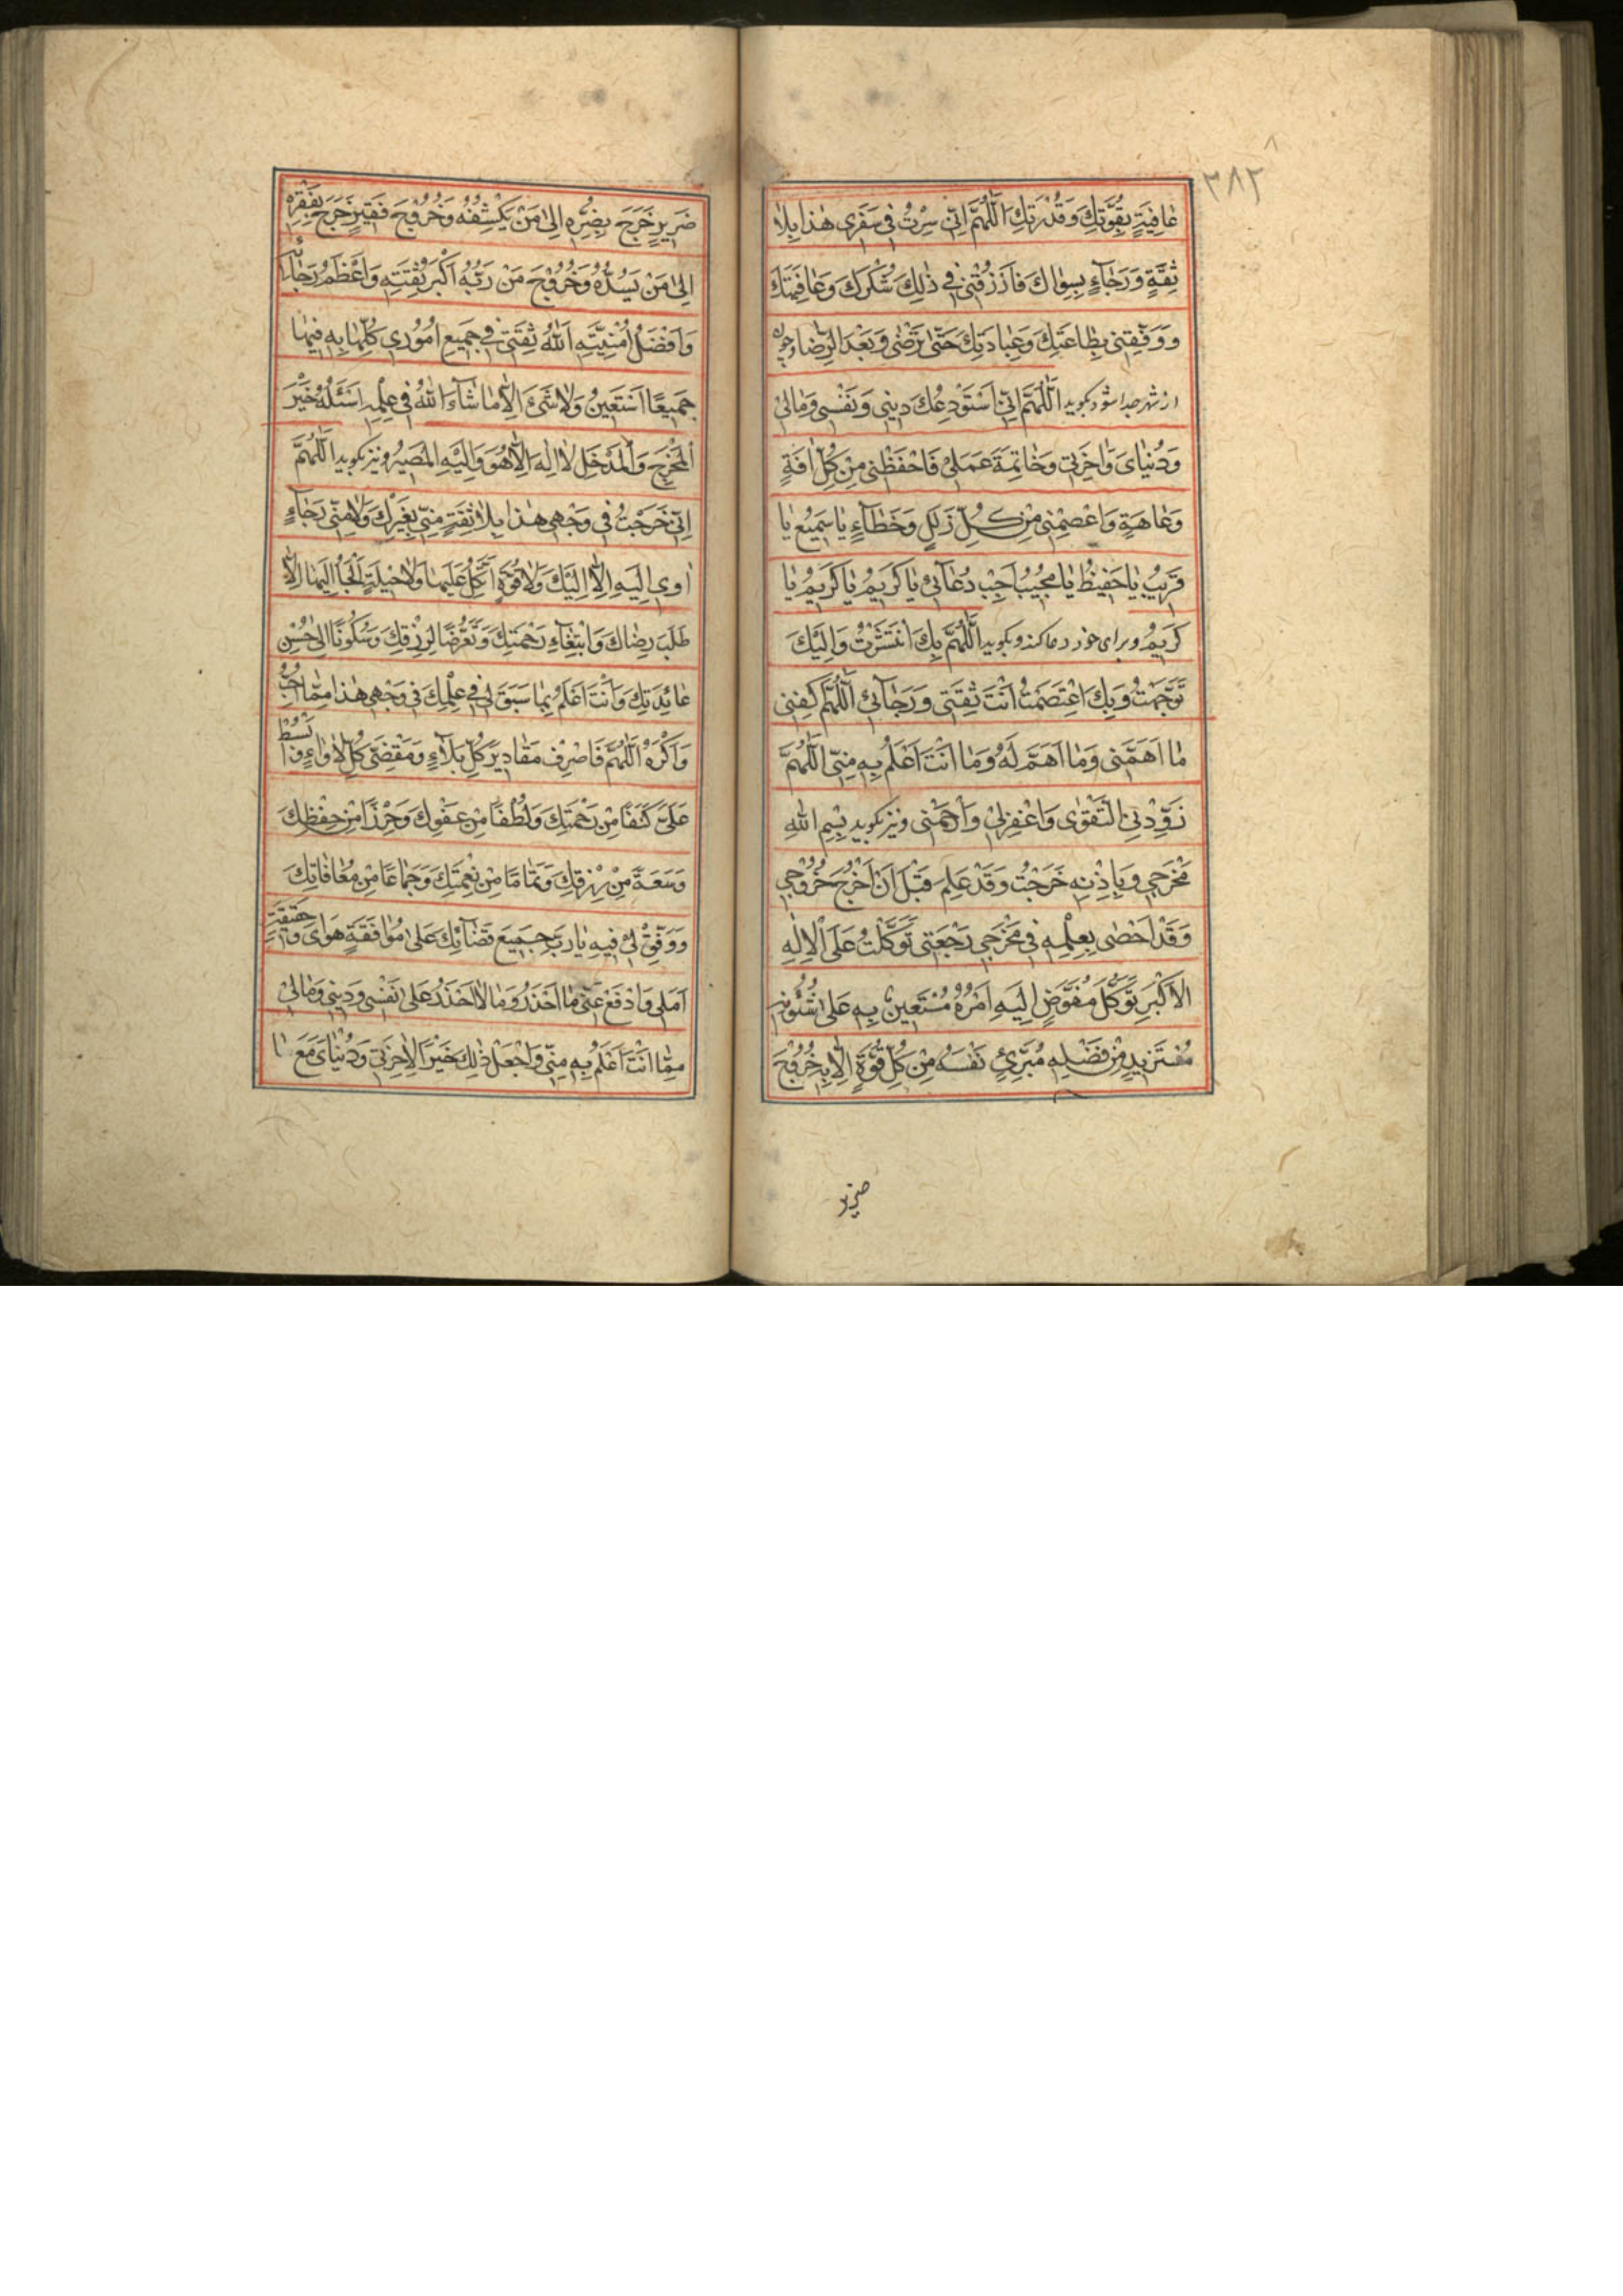 ٣٨٢
عَافِيَةٍ بِقُوَّتِكَ وَقُدْرَتِكَ اَللّٰهُمَّ اِنّي سِرْتُ في سَفَري هٰذا بِلا
ثِقَةٍ وَرَجَاءٍ بِسِوَاكَ فَارْزُقْني في ذٰلِكَ شُكْرَكَ وَعَافِيَتَكَ
وَوَفِّقْني بِطَاعَتِكَ وَعِبَادَتِكَ حَتّٰى تَرْضٰى وَبَعْدَ الرِّضَا وچون
از شهر جدا شود بگويد اَللّٰهُمَّ اِنّي اَسْتَوْدِعُكَ ديني وَنَفْسي وَمَالي
وَدُنْيَايَ وَاٰخِرَتي وَخَاتِمَةَ عَمَلي فَاحْفَظْني مِنْ كُلِّ اٰفَةٍ
وَعَاهَةٍ وَاعْصِمْني مِنْ كُلِّ زَلَلٍ وَخَطَاءٍ يَا سَميعُ يَا
قَريبُ يَا حَفيظُ يَا مُجيبُ اَجِبْ دُعَائي يَا كَريمُ يَا كَريمُ يَا
كَريمُ وبراى خود دعا كند وبگويد اَللّٰهُمَّ بِكَ انْتَشَرْتُ وَاِلَيْكَ
تَوَجَّهْتُ وَبِكَ اعْتَصَمْتُ اَنْتَ ثِقَتي وَرَجَائي اَللّٰهُمَّ اكْفِني
مَا اَهَمَّني وَمَا اَهَمَّ لَهُ وَمَا اَنْتَ اَعْلَمُ بِهِ مِنّي اَللّٰهُمَّ
زَوِّدْنِي التَّقْوٰى وَاغْفِرْلي وَارْحَمْني ونيز بگويد بِسْمِ اللّٰهِ
مَخْرَجي وَبِاِذْنِهِ خَرَجْتُ وَقَدْ عَلِمَ قَبْلَ اَنْ اَخْرُجَ خُرُوجي
وَقَدْ اَحْصٰى بِعِلْمِهِ في مَخْرَجي رَجْعَتي تَوَكَّلْتُ عَلَى الْاِلٰهِ
الْاَكْبَرِ تَوَكُّلَ مُفَوِّضٍ اِلَيْهِ اَمْرَهُ مُسْتَعينٍ بِهِ عَلٰى شُئُونِهِ
مُسْتَزيدٍ مِنْ فَضْلِهِ مُبَرِّئٍ نَفْسَهُ مِنْ كُلِّ قُوَّةٍ اِلّا بِهِ خُرُوجَ
ضَريرٍ خَرَجَ بِضُرِّهِ اِلٰى مَنْ يَكْشِفُهُ وَخُرُوجَ فَقيرٍ خَرَجَ بِفَقْرِهِ
اِلٰى مَنْ يَسُدُّهُ وَخُرُوجَ مَنْ رَبُّهُ اَكْبَرُ ثِقَتِهِ وَاَعْظَمُ رَجَائِهِ
وَاَفْضَلُ اُمْنِيَّتِهِ اَللّٰهُ ثِقَتي في جَميعِ اُمُوري كُلِّهَا بِهِ فيهَا
جَميعًا اَسْتَعينُ وَلَا شَيْءَ اِلّا مَا شَاءَ اللّٰهُ في عِلْمِهِ اَسْئَلُهُ خَيْرَ
الْمَخْرَجِ وَالْمَدْخَلِ لَا اِلٰهَ اِلّا هُوَ وَاِلَيْهِ الْمَصيرُ ونيز بگويد اَللّٰهُمَّ
اِنّي خَرَجْتُ في وَجْهي هٰذا بِلا ثِقَةٍ مِنّي بِغَيْرِكَ وَلَا مِنّي رَجَاءٍ
اٰوي اِلَيْهِ اِلّا اِلَيْكَ وَلَا قُوَّةٍ اَتَّكِلُ عَلَيْهَا وَلَا حيلَةٍ اَلْجَأُ اِلَيْهَا اِلّا
طَلَبَ رِضَاكَ وَابْتِغَاءَ رَحْمَتِكَ وَتَعَرُّضًا لِرِزْقِكَ وَسُكُونًا اِلٰى حُسْنِ
عَائِدَتِكَ وَاَنْتَ اَعْلَمُ بِمَا سَبَقَ لي في عِلْمِكَ في وَجْهي هٰذا مِمَّا اُحِبُّ
وَاَكْرَهُ اَللّٰهُمَّ فَاصْرِفْ مَقَاديرَ كُلِّ بَلَاءٍ وَمَقْضِيَّ كُلِّ لَأْوَاءٍ وَابْسُطْ
عَلَيَّ كَنَفًا مِنْ رَحْمَتِكَ وَلُطْفًا مِنْ عَفْوِكَ وَحِرْزًا مِنْ حِفْظِكَ
وَسَعَةً مِنْ رِزْقِكَ وَتَمَامًا مِنْ نِعْمَتِكَ وَجِمَاعًا مِنْ مُعَافَاتِكَ
وَوَفِّقْ لي فيهِ يَا رَبِّ جَميعَ قَضَائِكَ عَلٰى مُوَافَقَةِ هَوَايَ وَحَقيقَةِ
اَمَلي وَادْفَعْ عَنّي مَا اَحْذَرُ وَمَا لَا اَحْذَرُ عَلٰى نَفْسي وَديني وَمَالي
مِمَّا اَنْتَ اَعْلَمُ بِهِ مِنّي وَاجْعَلْ ذٰلِكَ خَيْرًا لِاٰخِرَتي وَدُنْيَايَ مَعَ مَا